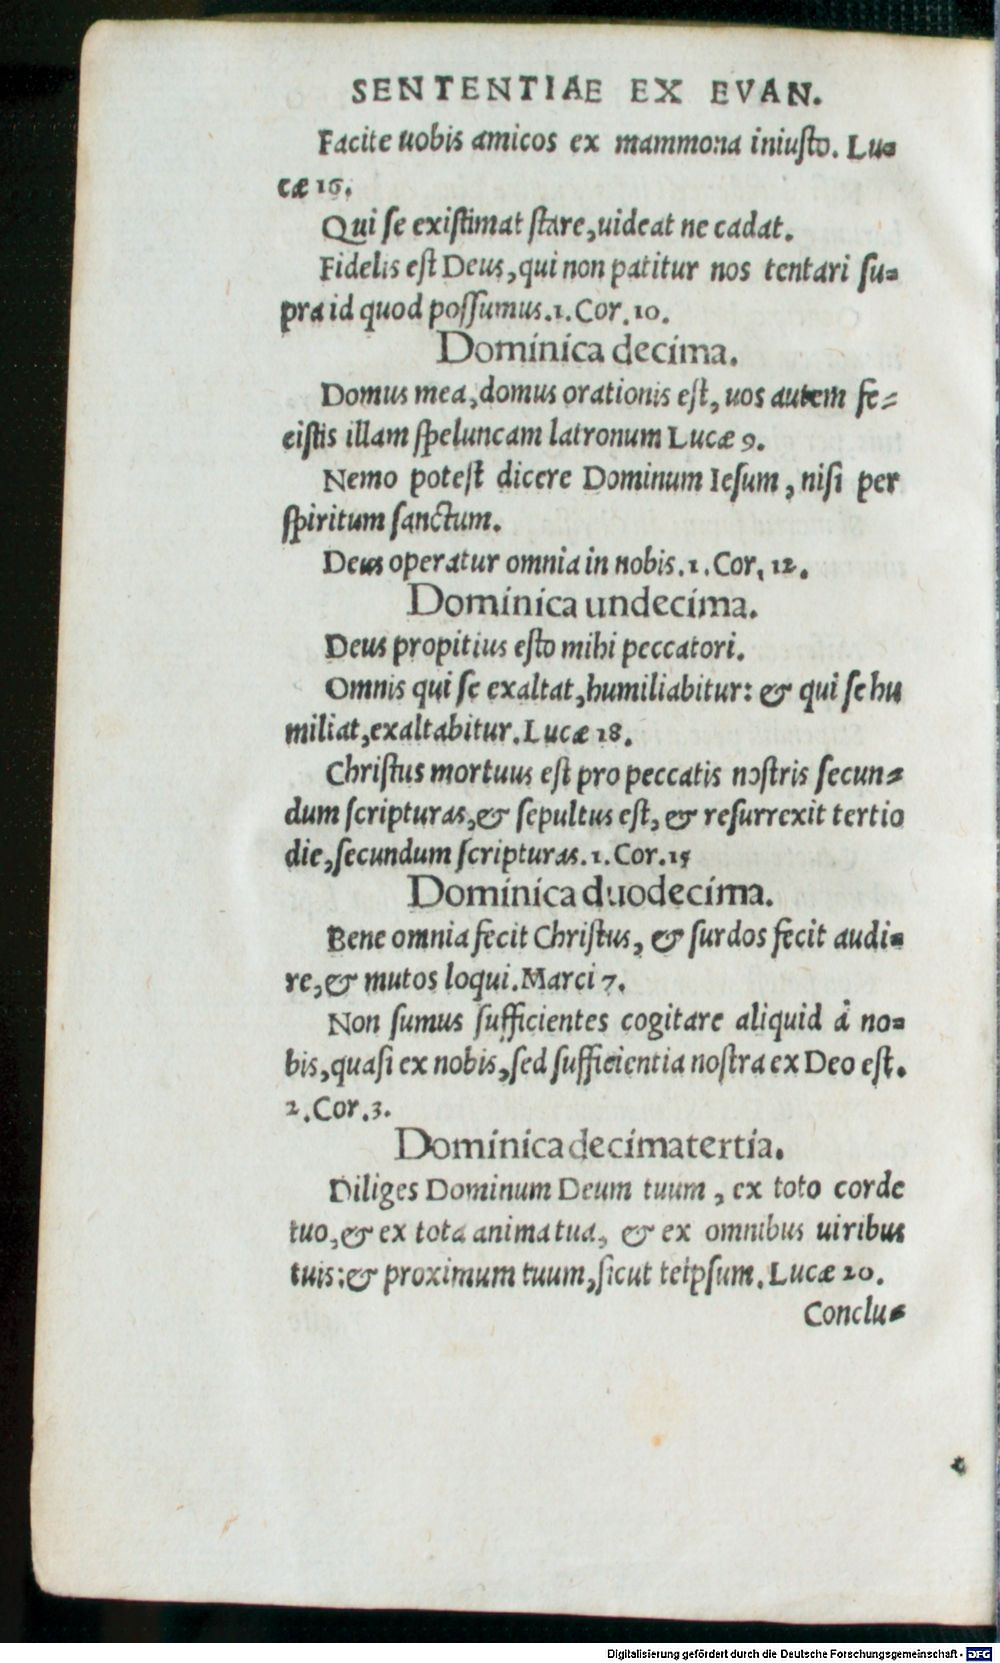 SENTENTIAE EX EVAN.
Facite uobis amicos ex mammona iniuſto. Lu=
cæ 16.
Qui ſe exiſtimat ſtare, uideat ne cadat.
Fidelis eſt Deus, qui non patitur nos tentari ſu=
pra id quod poſſumus. 1. Cor. 10.
Dominica decima.
Domus mea, domus orationis eſt, uos autem fe=
ciſtis illam ſpeluncam latronum Lucæ 9.
Nemo poteſt dicere Dominum Ieſum, niſi per
ſpiritum ſanctum.
Deus operatur omnia in nobis. 1. Cor. 12.
Dominica undecima.
Deus propitius eſto mihi peccatori.
Omnis qui ſe exaltat, humiliabitur: & qui ſe hu
miliat, exaltabitur. Lucæ 18.
Chriſtus mortuus eſt pro peccatis noſtris ſecun=
dum ſcripturas, & ſepultus eſt, & reſurrexit tertio
die, ſecundum ſcripturas. 1. Cor. 15
Dominica duodecima.
Bene omnia fecit Chriſtus, & ſurdos fecit audi=
re, & mutos loqui. Marci 7.
Non ſumus ſufficientes cogitare aliquid à no=
bis, quaſi ex nobis, ſed ſufficientia noſtra ex Deo eſt.
2. Cor. 3.
Dominica decimatertia.
Diliges Dominum Deum tuum, ex toto corde
tuo, & ex tota anima tua, & ex omnibus uiribus
tuis: & proximum tuum, ſicut teipſum. Lucæ 20.
Conclu=
Digitalisierung gefördert durch die Deutsche Forschungsgemeinschaft - DFG